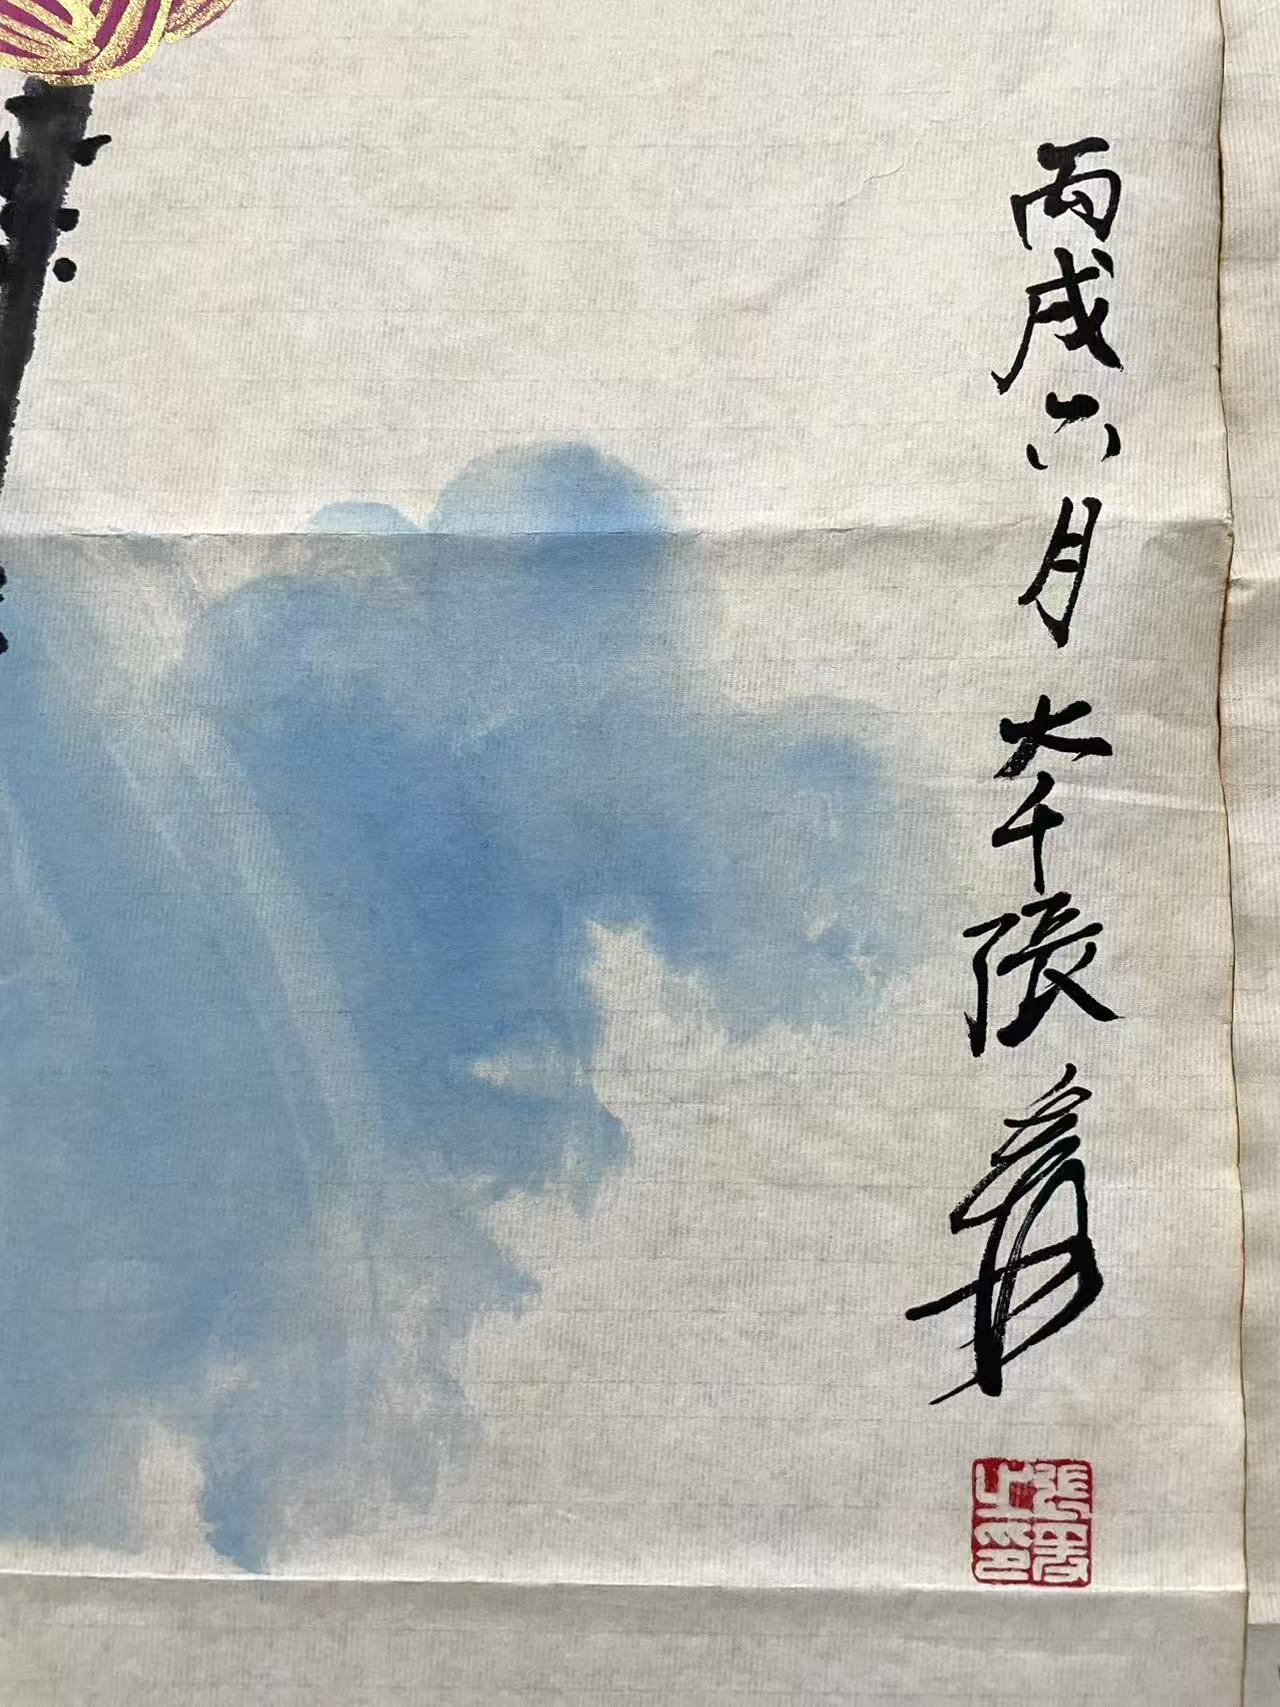 丙戌六月 大千張爰
張爰之印